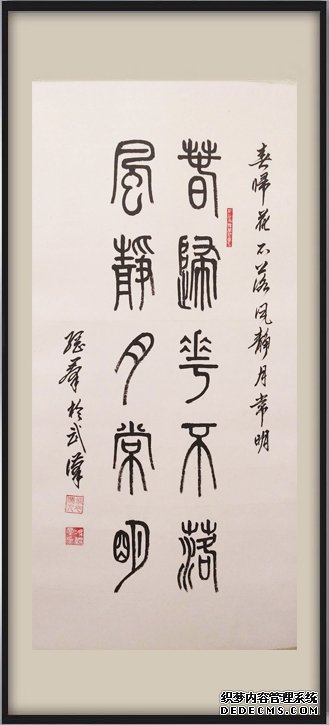 春歸花不落风静月常明
春歸花不落
風靜月常明
於武漢
织梦内容管理系统
DEDECMS.COM